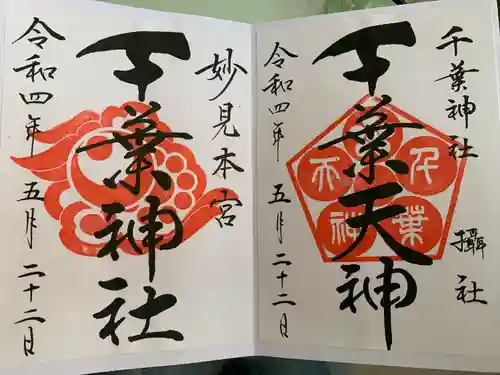 千葉神社 攝社
千葉天神
令和四年 五月 二十二日
妙見本宮
千葉神社
令和四年 五月 二十二日
千葉
天神